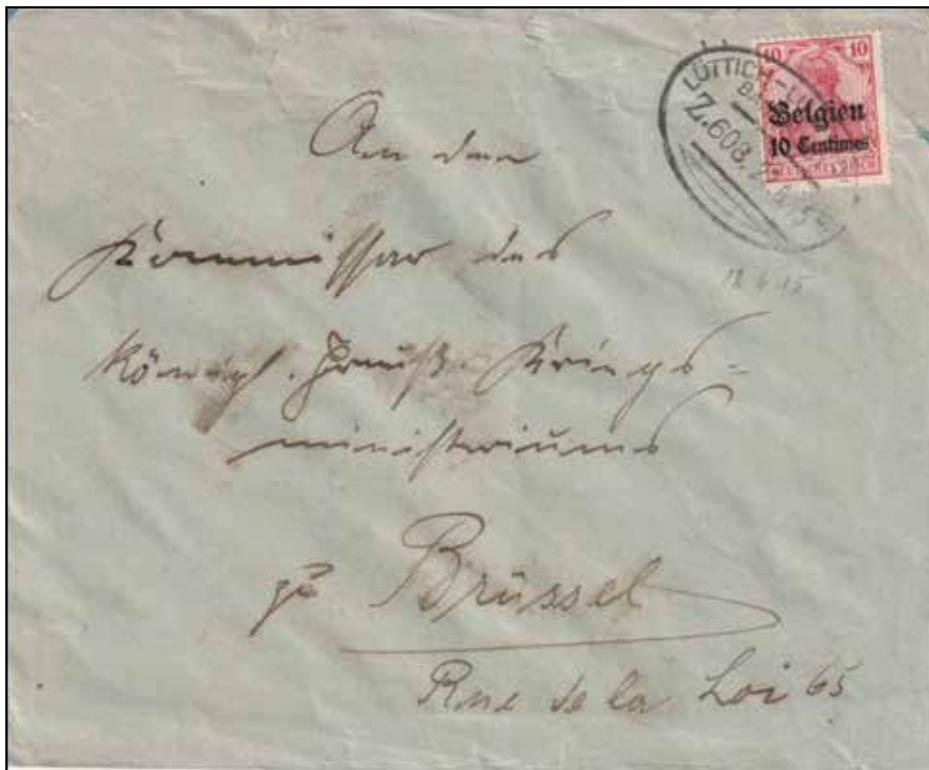 10 10
LÜTTICH-
Z.608.
Belgien
10 Centimes
An den
Kommissar des
Königl. Preuß. Kriegs=
ministeriums
zu Brüssel
Rue de la Loi 65
18 6 15